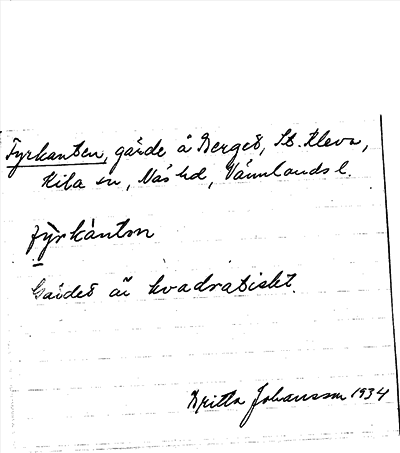 Fyrkanten, gärde å Berget, St. Kleva,
Kila sn, Näs hd, Värmlands l.
fỳrkántn
Gärdet är kvadratiskt.
Britta Johansson 1934